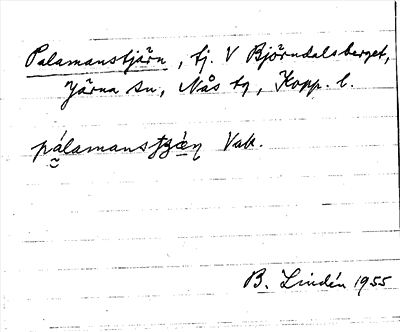 Palamanstjärn, tj. V Björndalsberget,
Järna sn, Nås tg, Kopp. l.
pálamanstjǽṇ Vak.
B. Lindén 1955